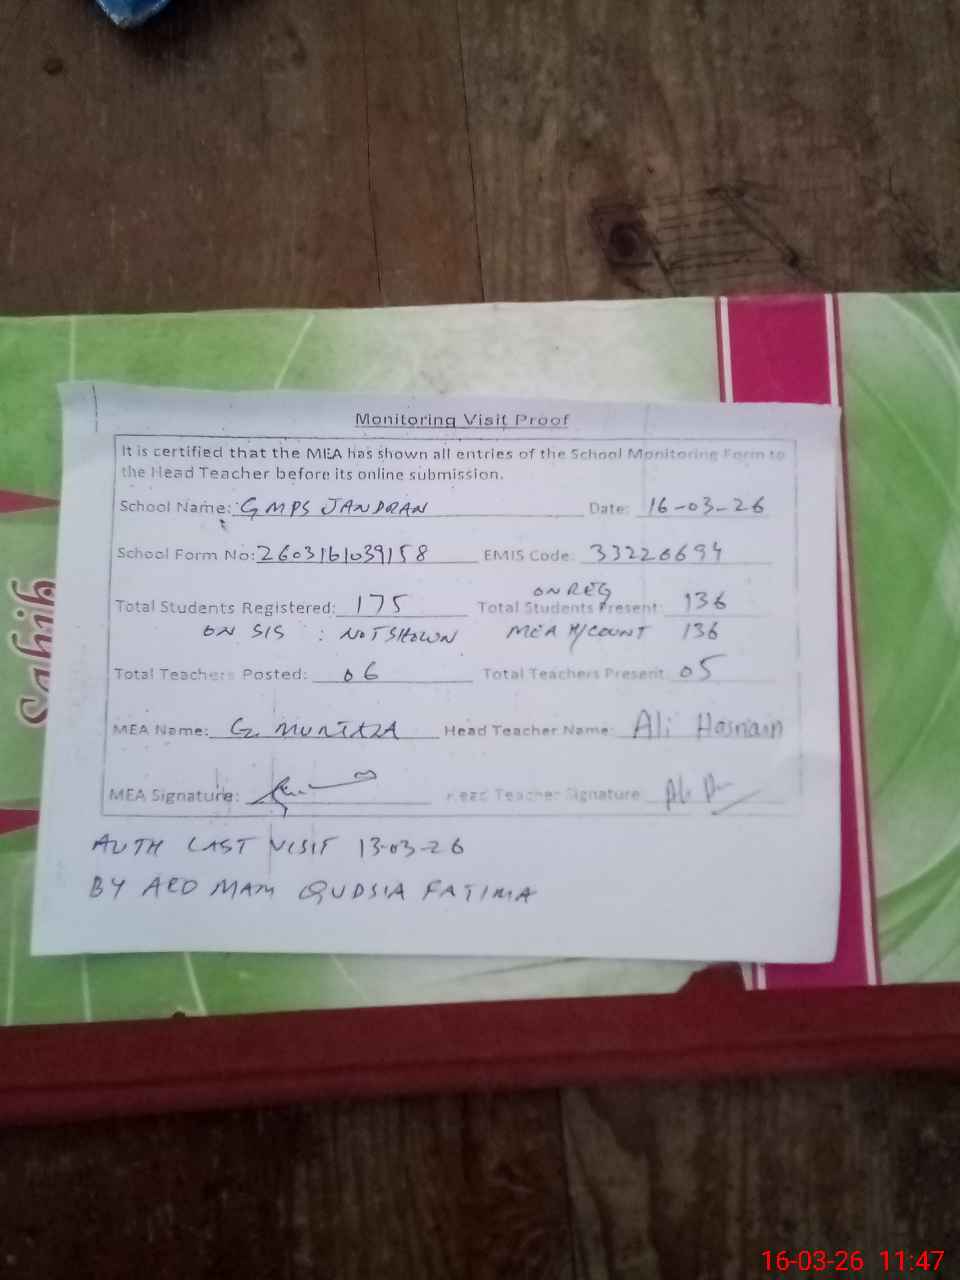 Monitoring Visit Proof
It is certified that the MEA has shown all entries of the School Monitoring Form to
the Head Teacher before its online submission.
School Name: GMPS JANDRAN Date: 16-03-26
School Form No: 2603161039158 EMIS Code: 33226694
ON REG
Total Students Registered: 175 Total Students Present: 136
ON SIS : NOT SHOWN MEA H/COUNT 136
Total Teachers Posted: 06 Total Teachers Present: 05
MEA Name: G. MURTAZA Head Teacher Name: Ali Hasnain
MEA Signature: Head Teacher Signature
AUTH LAST VISIT 13-03-26
BY AEO MAM QUDSIA FATIMA
Sahib
16-03-26 11:47